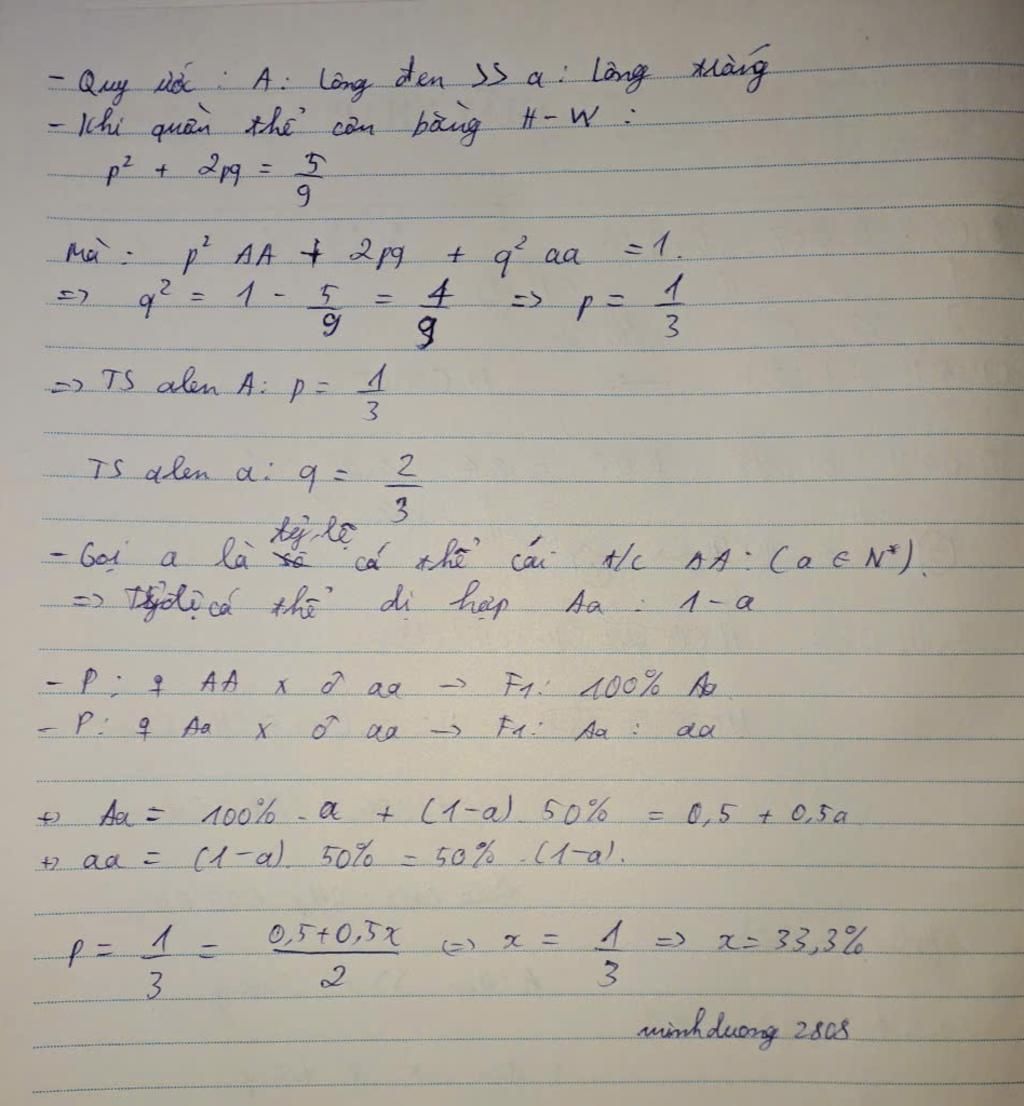 - Quy ước : A : lông đen >> a : lông trắng
- Khi quần thể cân bằng H-W :
p² + 2pq = 5/9
Mà : p² AA + 2pq + q² aa = 1.
=> q² = 1 - 5/9 = 4/9 => p = 1/3
=> TS alen A: p = 1/3
TS alen a: q = 2/3
- Gọi a là tỷ lệ cá thể cái t/c AA : (a ∈ N*).
=> Tỷ lệ cá thể dị hợp Aa : 1 - a
- P : ♀ AA x ♂ aa → F1: 100% Aa
- P : ♀ Aa x ♂ aa → F1: Aa : aa
+) Aa = 100% . a + (1-a) . 50% = 0,5 + 0,5a
+) aa = (1-a) . 50% = 50% . (1-a).
p = 1/3 = (0,5+0,5x)/2 <=> x = 1/3 => x = 33,3%
minhduong 2808